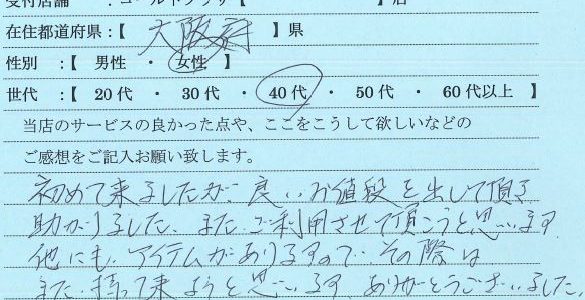 受付店舗 :ゴールドプラザ【 】店
在住都道府県:【 大阪府 】県
性別 :【 男性 ・ 女性 】
世代 :【 20代 ・ 30代 ・ 40代 ・ 50代 ・ 60代以上 】
当店のサービスの良かった点や、ここをこうして欲しいなどの
ご感想をご記入お願い致します。
初めて来ましたが、良いお値段を出して頂き
助かりました。また、ご利用させて頂こうと思います
他にも、アイテムがありますので、その際は
また、持って来ようと思います。ありがとうございました。